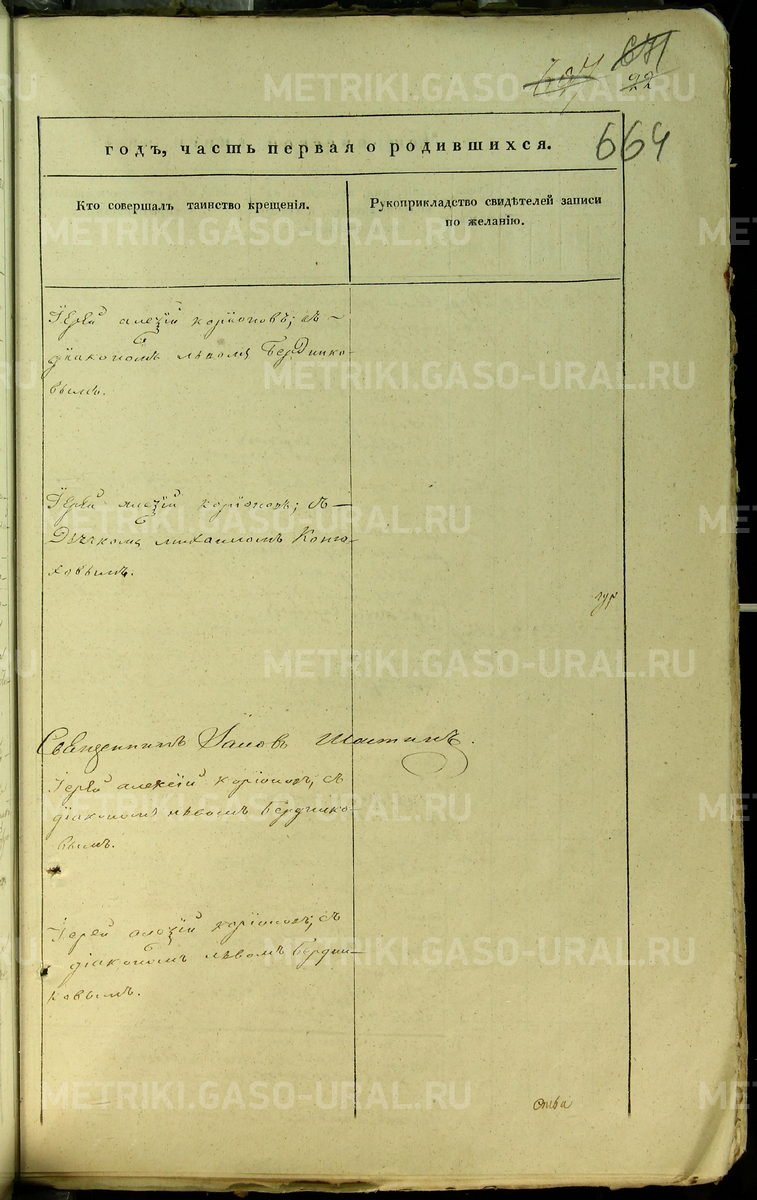 671
22
664
годъ, часть первая о родившихся.
Кто совершалъ таинство крещенія.
Рукоприкладство свидѣтелей записи
по желанію.
Іерей алеѯій коріоновъ; съ
діакономъ львомъ Берднико-
вымъ.
Іерей алеѯій коріоновъ; съ
Дьячкомъ михаиломъ Коню-
ховымъ.
Священникъ Іаковъ Шастинъ.
Іерей алексій коріоновъ, съ
діакономъ львомъ берднико-
вымъ.
Іерей алеѯій коріоновъ; съ
діакономъ львомъ Бердни-
ковымъ.
METRIKI.GASO-URAL.RU